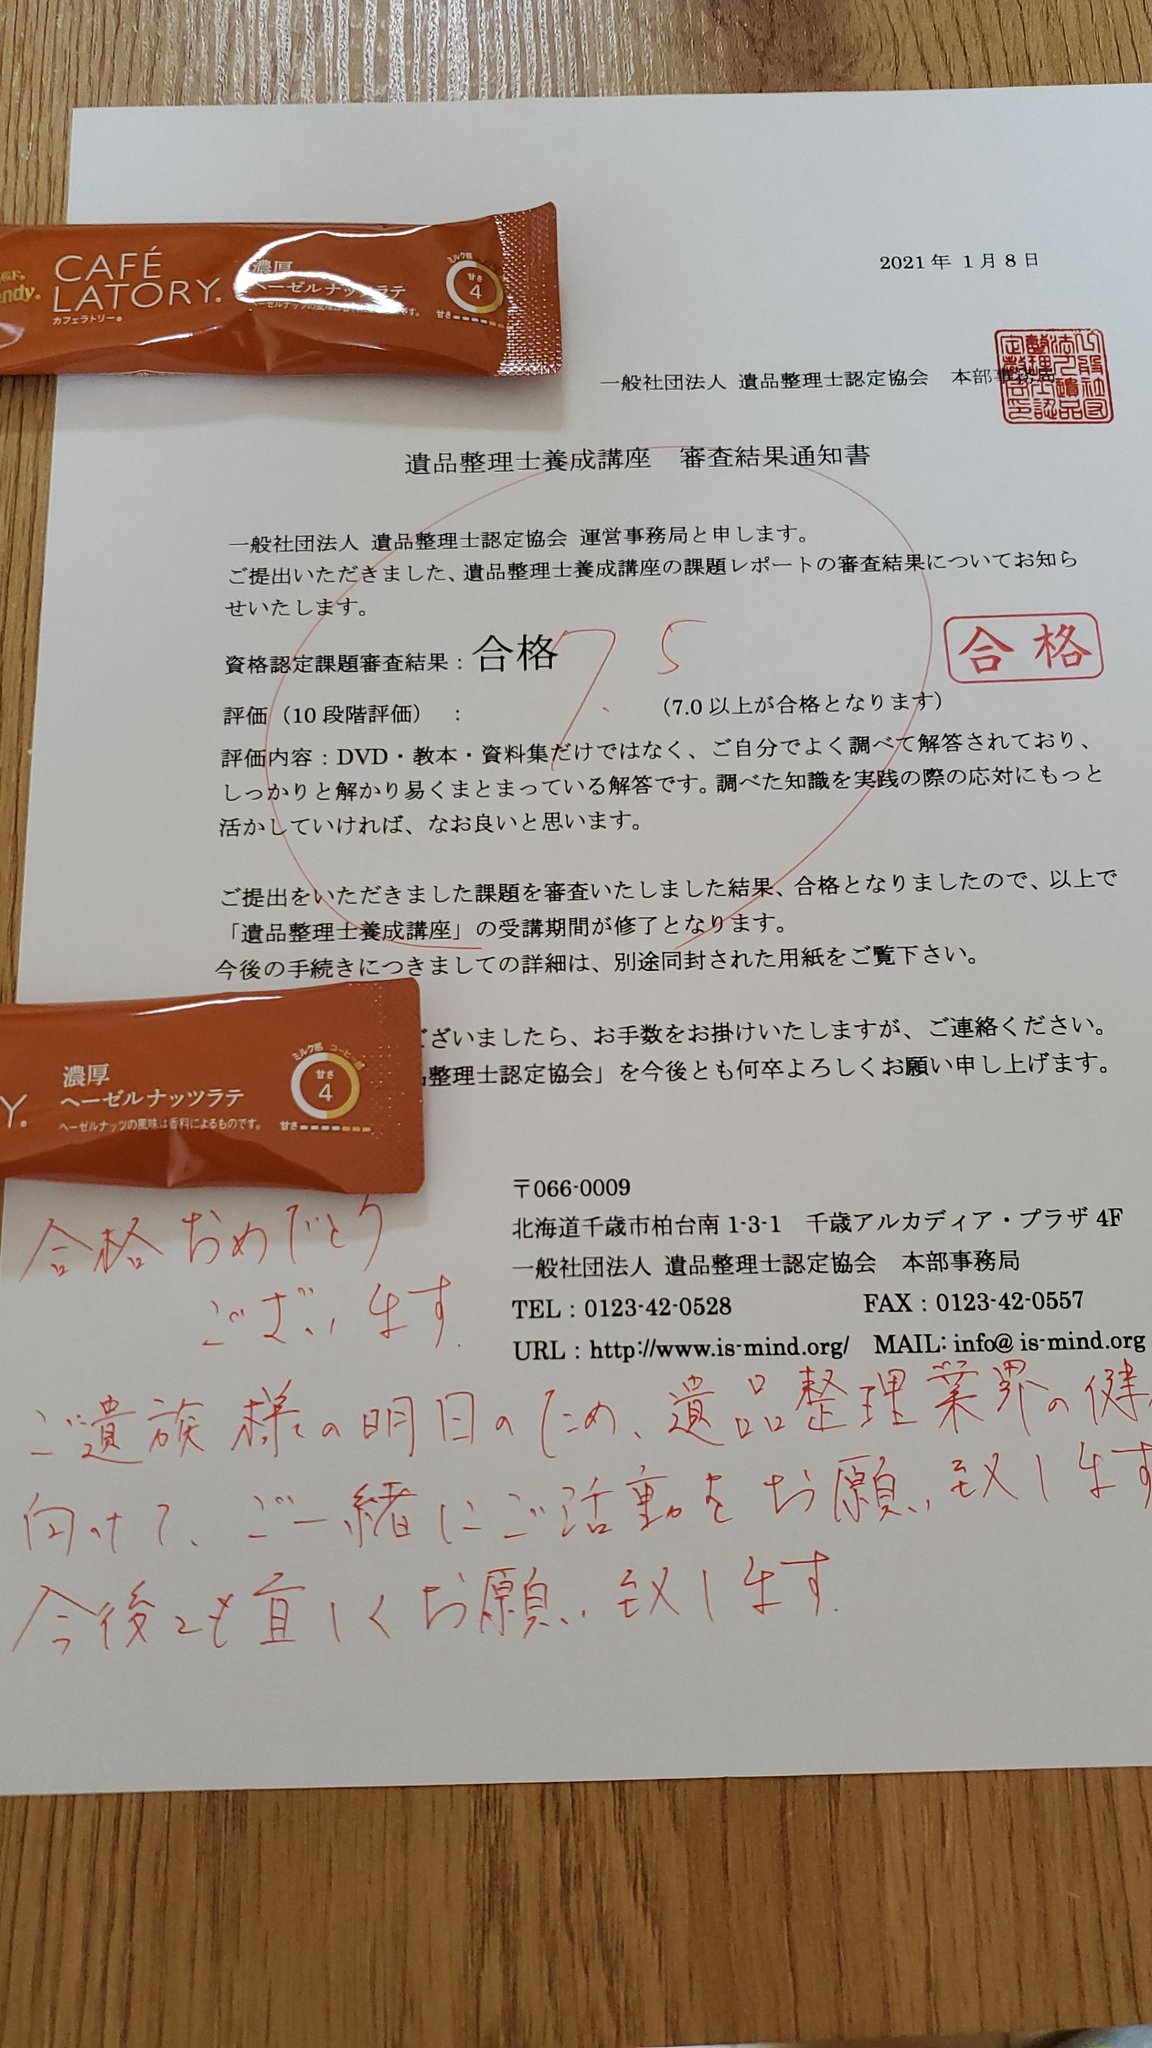 CAFÉ
LATORY.
カフェラトリー®
濃厚
ヘーゼルナッツラテ
ミルク感
甘さ
4
甘さ
2021年 1月8日
一般社団法人 遺品整理士認定協会 本部事務局
遺品整理士養成講座 審査結果通知書
一般社団法人 遺品整理士認定協会 運営事務局と申します。
ご提出いただきました、遺品整理士養成講座の課題レポートの審査結果についてお知ら
せいたします。
資格認定課題審査結果：合格
合格
評価（10段階評価） ： 7.5 （7.0以上が合格となります）
評価内容：DVD・教本・資料集だけではなく、ご自分でよく調べて解答されており、
しっかりと解かり易くまとまっている解答です。調べた知識を実践の際の応対にもっと
活かしていければ、なお良いと思います。
ご提出をいただきました課題を審査いたしました結果、合格となりましたので、以上で
「遺品整理士養成講座」の受講期間が修了となります。
今後の手続きにつきましての詳細は、別途同封された用紙をご覧下さい。
ございましたら、お手数をお掛けいたしますが、ご連絡ください。
整理士認定協会」を今後とも何卒よろしくお願い申し上げます。
Y®
濃厚
ヘーゼルナッツラテ
ヘーゼルナッツの風味は香料によるものです。
ミルク感 コーヒー感
甘さ
4
甘さ
〒066-0009
北海道千歳市柏台南1-3-1 千歳アルカディア・プラザ4F
一般社団法人 遺品整理士認定協会 本部事務局
TEL：0123-42-0528 FAX：0123-42-0557
URL：http://www.is-mind.org/ MAIL: info@ is-mind.org
合格おめでとう
ございます.
ご遺族様の明日のため、遺品整理業界の健
向けて、ご一緒にご活動をお願い致します
今後とも宜しくお願い致します.